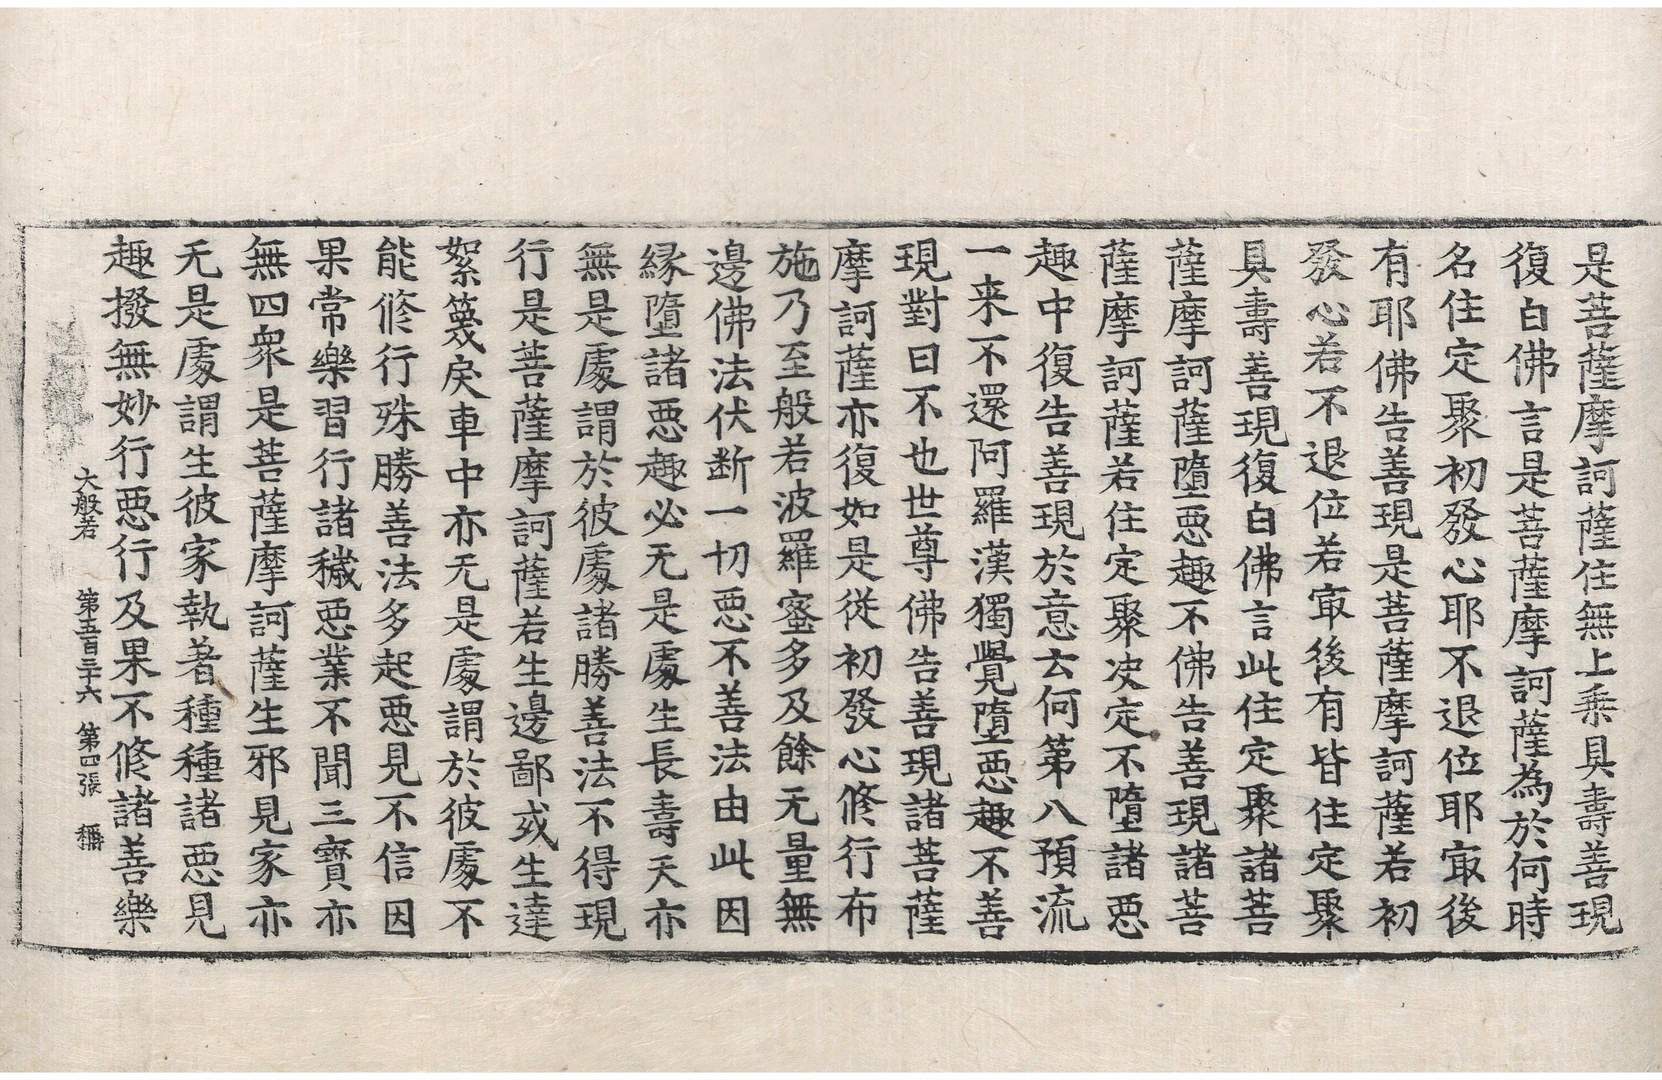 是菩薩摩訶薩住無上乘具壽善現
復白佛言是菩薩摩訶薩為於何時
名住定聚初發心耶不退位耶㝡後
有耶佛告善現是菩薩摩訶薩若初
發心若不退位若㝡後有皆住定聚
具壽善現復白佛言此住定聚諸菩
薩摩訶薩墮悪趣不佛告善現諸菩
薩摩訶薩若住定聚决定不墮諸悪
趣中復告善現於意云何第八預流
一来不還阿羅漢獨覺墮悪趣不善
現對曰不也世尊佛告善現諸菩薩
摩訶薩亦復如是從初發心修行布
施乃至般若波羅蜜多及餘无量無
邊佛法伏断一切悪不善法由此因
緣墮諸悪趣必无是處生長壽天亦
無是處謂於彼處諸勝善法不得現
行是菩薩摩訶薩若生邊鄙或生達
絮篾戾車中亦无是處謂於彼處不
能修行殊勝善法多起悪見不信因
果常樂習行諸穢悪業不聞三寶亦
無四衆是菩薩摩訶薩生邪見家亦
无是處謂生彼家執著種種諸悪見
趣撥無妙行悪行及果不修諸善樂
大般若 第五百三十六 第四張